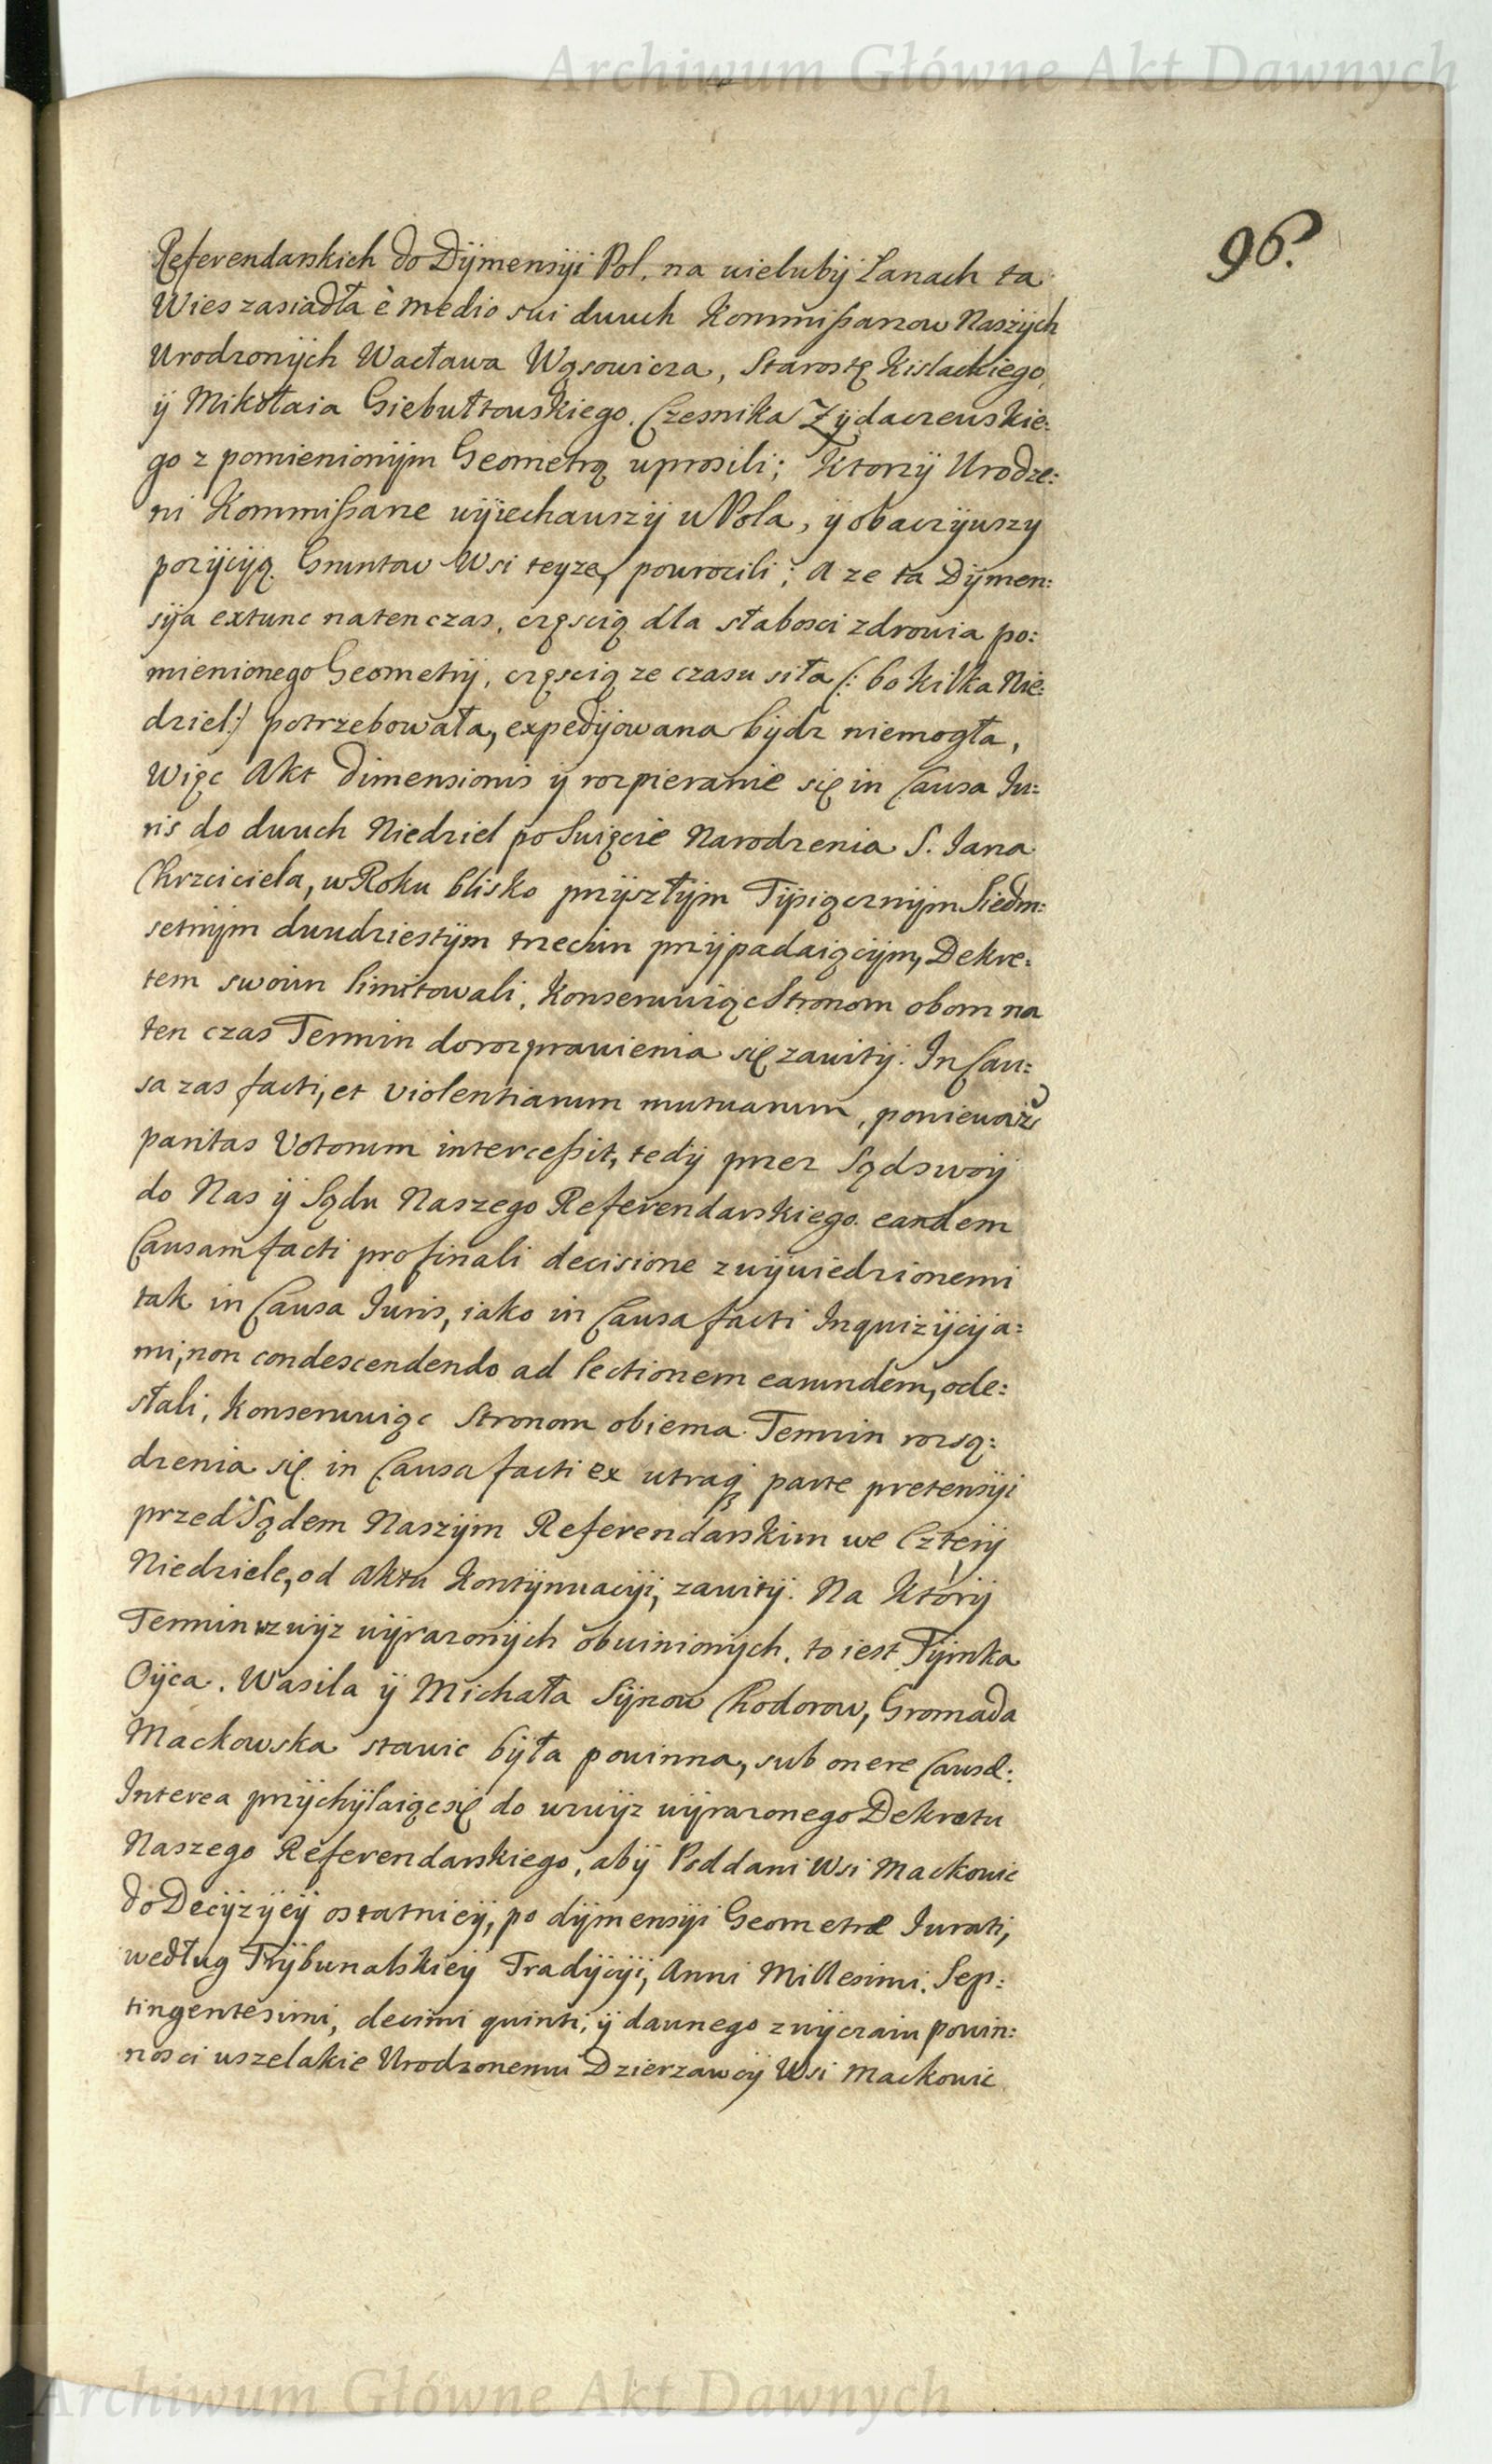 Archiwum Główne Akt Dawnych
96.
Referendarskich do Dÿmensÿi Pol. na wielubÿ Łanach ta
Wies zasiadła è medio sui dwuch Kommißarzow Naszÿch
Urodzonÿch Wacława Wąsowicza, Starostę Kislackiego,
ÿ Mikołaia Giebułtowskiego. Czesnika Zÿdaczewskie:
go z pomienionÿm Geometrą uprosili; Ktorzÿ Urodze:
ni Kommißarze wÿiechawszÿ w Pola, ÿ obaczÿwszy
pozÿcÿą Gruntow Wsi teyze, powrocili; A ze ta Dÿmen:
sÿa extunc natenczas, częscią dla słabosci zdrowia po:
mienionego Geometrÿ, częscią ze czasu siła (: bo kilka Nie:
dziel:) potrzebowała, expedÿowana bÿdz niemogła,
Więc Akt Dimensionis ÿ rozpieranie się in Causa Iu:
ris do dwuch Niedziel po Swięcie Narodzenia S. Iana
Chrzciciela, w Roku blisko przÿszłÿm Tÿsiącznÿm Siedm:
setnÿm dwudziestÿm trzecim przÿpadaiącÿm, Dekre:
tem swoim limitowali, Konserwuiąc Stronom obom na
ten czas Termin do rozprawienia się zawitÿ. In Cau:
sa zas facti, et violentiarum mutuarum, poniewaz
paritas Votorum interceßit, tedÿ przez Sąd swoÿ
do Nas ÿ Sądu Naszego Referendarskiego eandem
Causam facti pro finali decisione z wÿwiedzionemi
tak in Causa Iuris, iako in Causa facti Inquizÿcÿa:
mi, non condescendendo ad lectionem earundem, ode:
słali, Konserwuiąc Stronom obiema Termin rozsą:
dzenia się in Causa facti ex utraq parte pretensÿi
przed Sądem Naszÿm Referendarskim we Czterÿ
Niedziele, od Aktu Kontÿnuacÿi, zawitÿ. Na Ktorÿ
Termin wzwÿz wÿrazonÿch obwinionÿch. to iest Tÿmka
Oÿca. Wasila ÿ Michała Sÿnow Chodorow, Gromada
Mackowska stawic bÿła powinna, sub onere Causæ:
Interea przÿchÿlaiąc się do wzwÿz wÿrazonego Dekretu
Naszego Referendarskiego, abÿ Poddani Wsi Mackowic
do Decÿzÿeÿ ostatnieÿ, po dÿmensÿi Geometræ Iurati,
według Trÿbunalskieÿ Tradÿcÿi, Anni Millesimi. Sep:
tingentesimi, decimi quinti, ÿ dawnego zwÿczaiu powin:
nosci wszelakie Urodzonemu Dzierzawcÿ Wsi Mackowic
Archiwum Główne Akt Dawnych